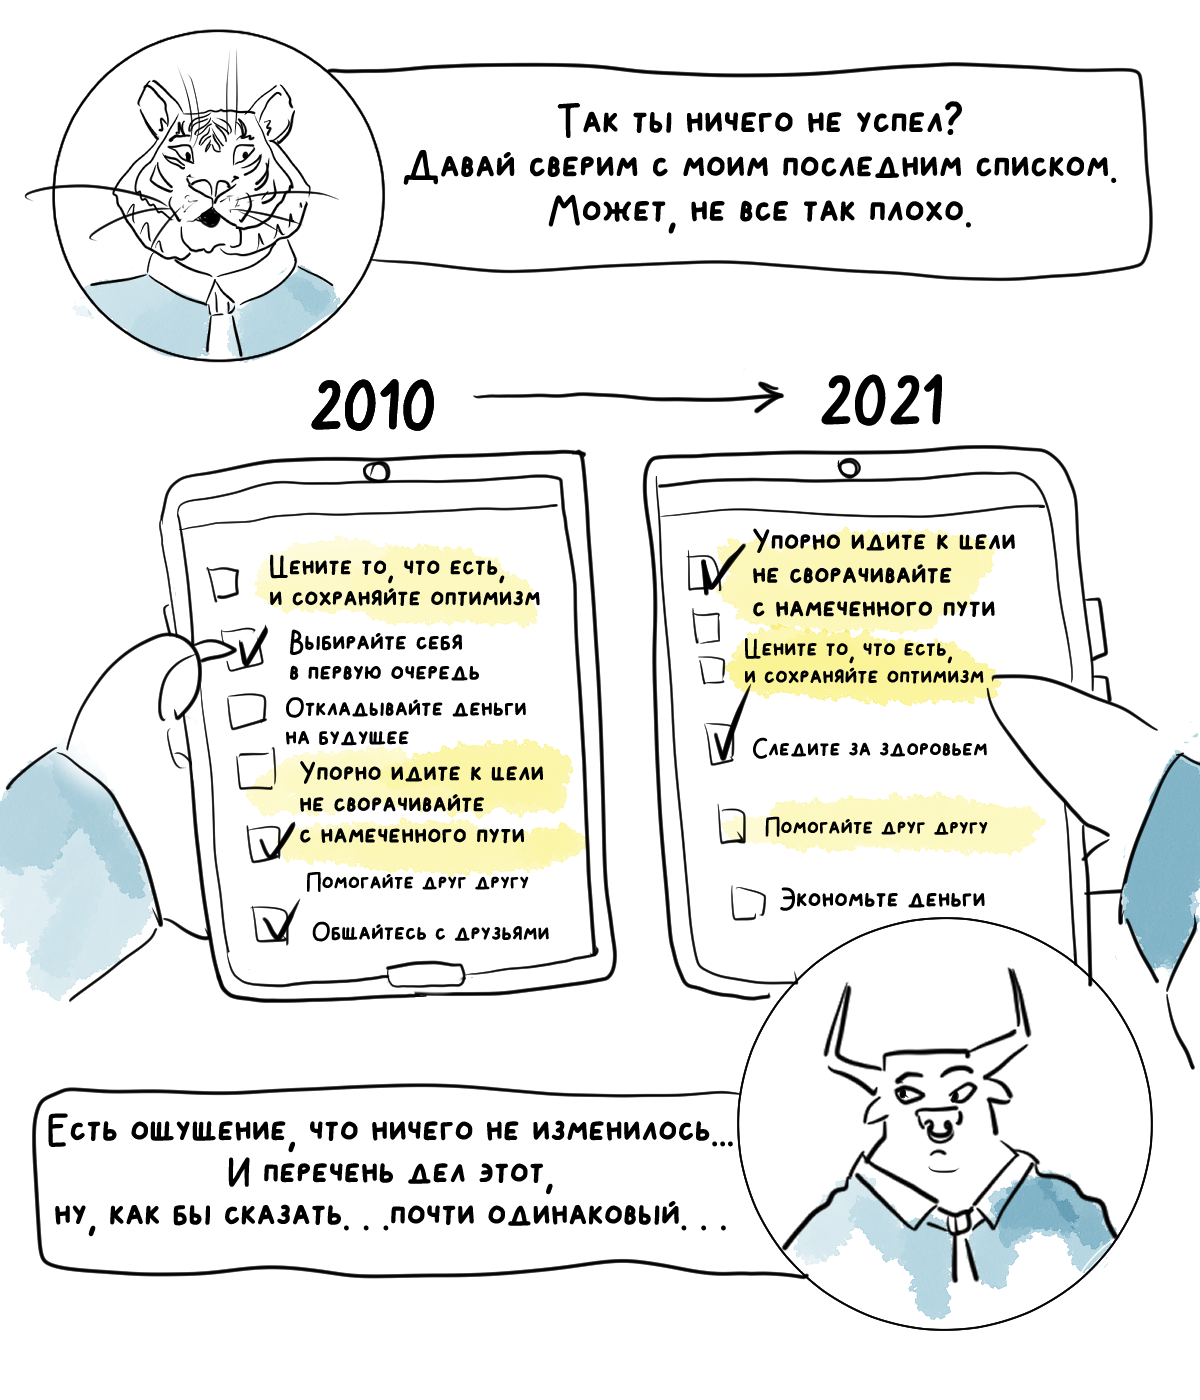 Так ты ничего не успел?
Давай сверим с моим последним списком.
Может, не все так плохо.
2010
2021
Цените то, что есть,
и сохраняйте оптимизм
Выбирайте себя
в первую очередь
Откладывайте деньги
на будущее
Упорно идите к цели
не сворачивайте
с намеченного пути
Помогайте друг другу
Общайтесь с друзьями
Упорно идите к цели
не сворачивайте
с намеченного пути
Цените то, что есть,
и сохраняйте оптимизм
Следите за здоровьем
Помогайте друг другу
Экономьте деньги
Есть ощущение, что ничего не изменилось...
И перечень дел этот,
ну, как бы сказать. . .почти одинаковый. . .